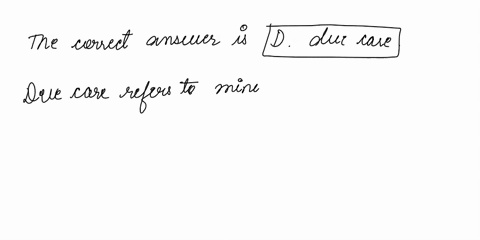 The correct answer is D. due care
Due care refers to mine